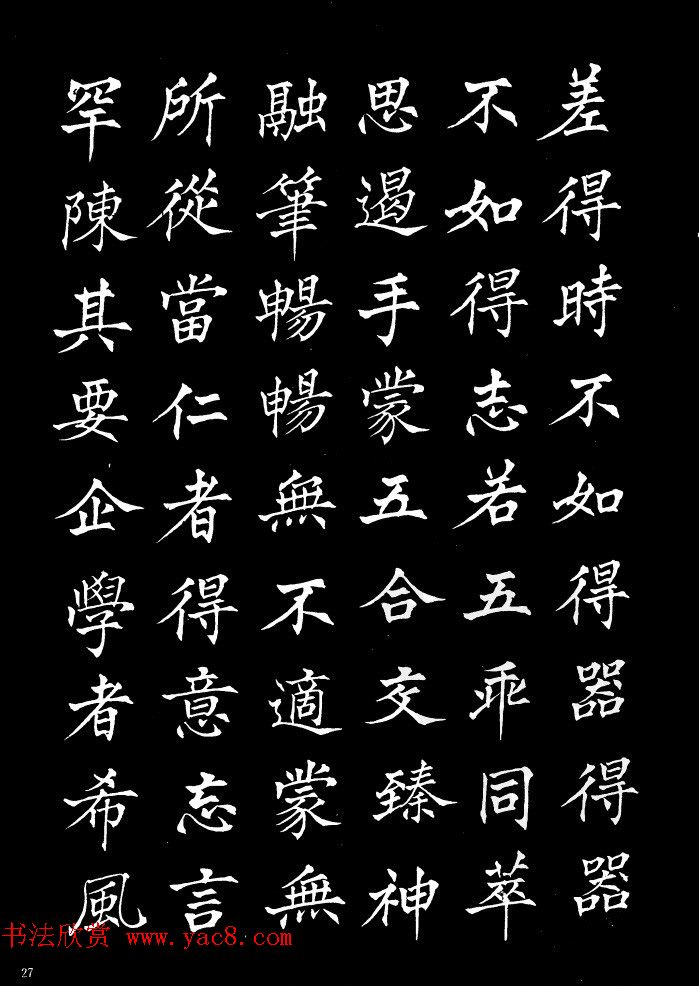 差得時不如得器得器
不如得志若五乖同萃
思遏手蒙五合交臻神
融筆暢暢無不適蒙無
所從當仁者得意忘言
罕陳其要企學者希風
书法欣赏 www.yac8.com
27